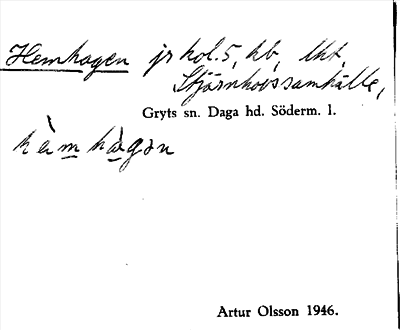 Hemhagen jr kol. 5, hb, lht,
Stjärnhovssamhälle,
Gryts sn. Daga hd. Söderm. l.
hèmhàgən
Artur Olsson 1946.